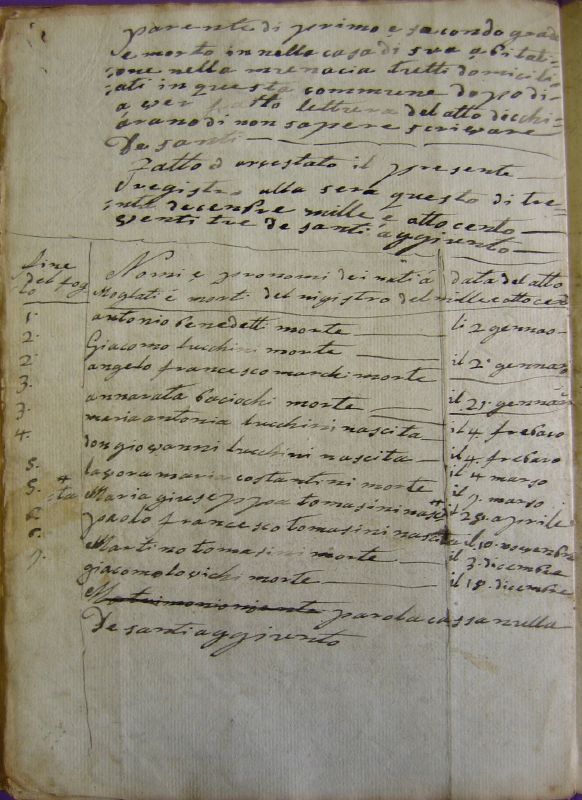 parente di primo e secondo grado
e morto in nella casa di sua abitat=
ione nella menacia tretti domicili=
ati in questa commune dopo di=
a ver fatto lettura del atto dicchi=
arano di non sapere scrivare
De santi
fatto d arrestato il presente
dregistro alla sera questo di tre=
nta decembre mille e otto cento
venti tre de santi aggiunto
fine del fog to
Nomi e pronomi dei nati a data del atto
Moglati e morti del rigistro del mille otto cento
1. antonio benedetti morte li 2 gennaro
2. Giacomo lucchini morte il 2 gennaro
2 angelo francesco marchi morte
3. annarata baciochi morte il 21 gennaro
3. maria antonia lucchini nascita il 4 frebaro
4. don giovanni lucchini nascita il 4 frebaro
5. lavora maria costantini morte il 4 marso
5. Maria giuseppa tomasini nascita il 7 marso
paolo francesco tomasini nascita 28 aprile
Martino tomasini morte il 10 novembre
7. giacomo lovichi morte il 3 dicembre
il 18 dicembre
Matrimonio niente parola cassa nulla
De santi aggiunto